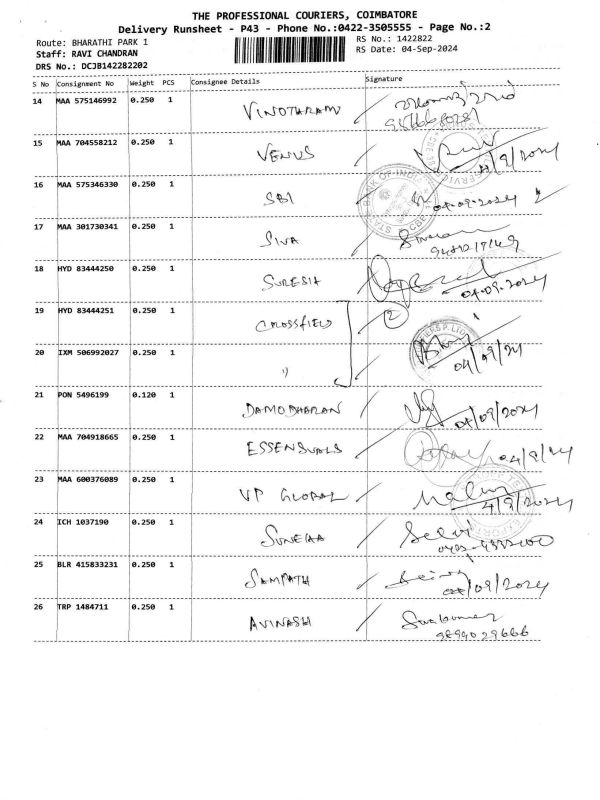 THE PROFESSIONAL COURIERS, COIMBATORE
Delivery Runsheet - P43 - Phone No.:0422-3505555 - Page No.:2
Route: BHARATHI PARK 1
RS No.: 1422822
Staff: RAVI CHANDRAN
RS Date: 04-Sep-2024
DRS No.: DCJB142282202
S No Consignment No Weight PCS Consignee Details Signature
14 MAA 575146992 0.250 1 VINOTHRAM
15 MAA 704558212 0.250 1 VENUS
16 MAA 575346330 0.250 1 SBI 04.09.2024
17 MAA 301730341 0.250 1 SIVA
18 HYD 83444250 0.250 1 SURESH 04.09.2024
19 HYD 83444251 0.250 1 CROSSFIELD 2
20 IXM 506992027 0.250 1 " 04/09/24
21 PON 5496199 0.120 1 DAMODHARAN 04/09/2024
22 MAA 704918665 0.250 1 04/9/24
23 MAA 600376089 0.250 1 VP GLOBAL 4/9/2024
24 ICH 1037190 0.250 1 Selvi
25 BLR 415833231 0.250 1 SAMPATH 04/09/2024
26 TRP 1484711 0.250 1 AVINASH 9894029666